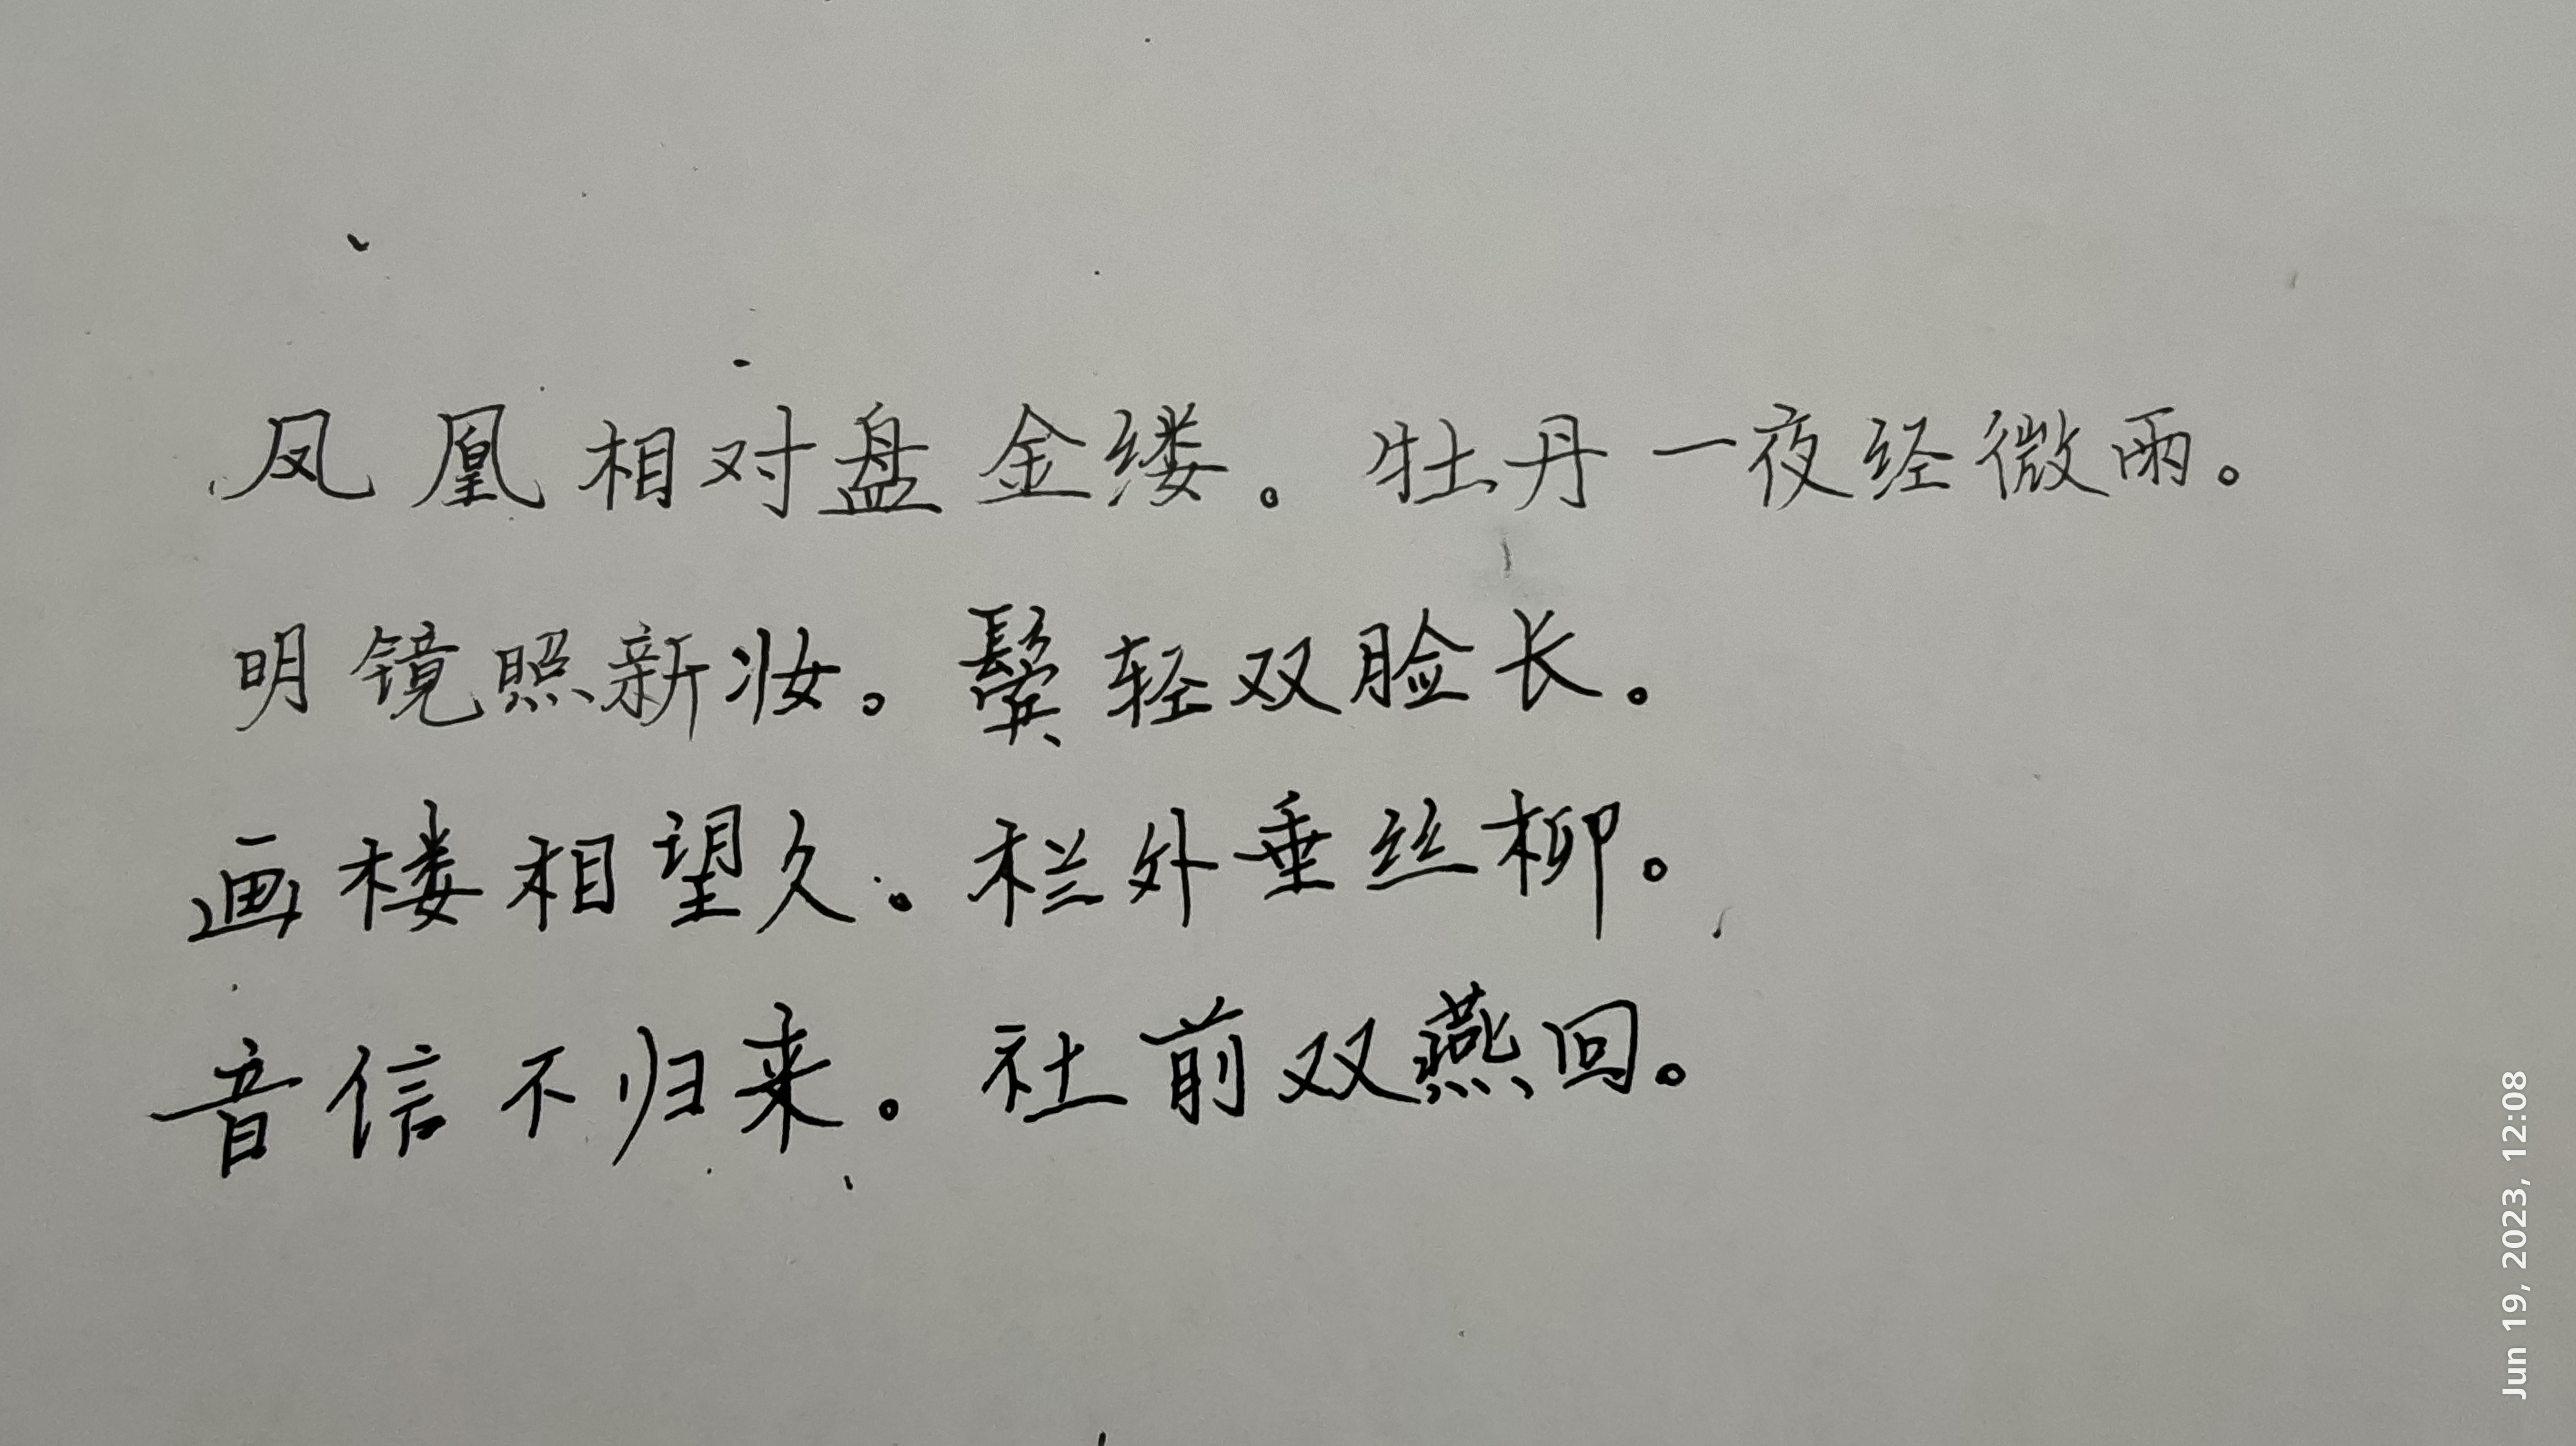 凤凰相对盘金缕。牡丹一夜经微雨。
明镜照新妆。鬓轻双脸长。
画楼相望久。栏外垂丝柳。
音信不归来。社前双燕回。
Jun 19, 2023, 12:08